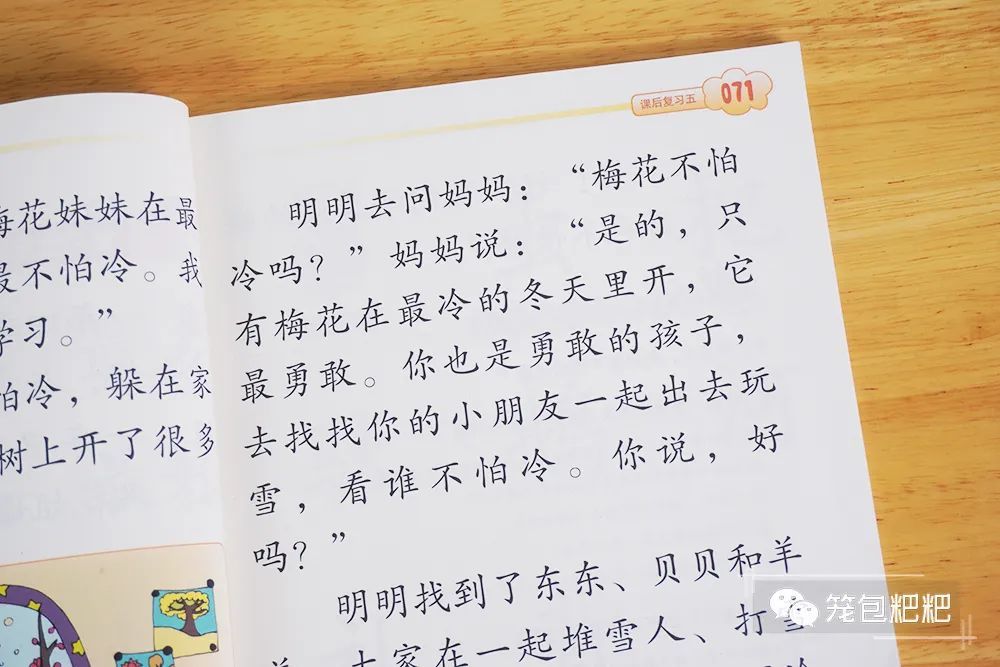 梅花妹妹在最
最不怕冷。我
学习。”
怕冷，躲在家
树上开了很多
课后复习五 071
明明去问妈妈：“梅花不怕
冷吗？”妈妈说：“是的，只
有梅花在最冷的冬天里开，它
最勇敢。你也是勇敢的孩子，
去找找你的小朋友一起出去玩
雪，看谁不怕冷。你说，好
吗？”
明明找到了东东、贝贝和羊
大家在一起堆雪人、打雪
冷
笼包粑粑